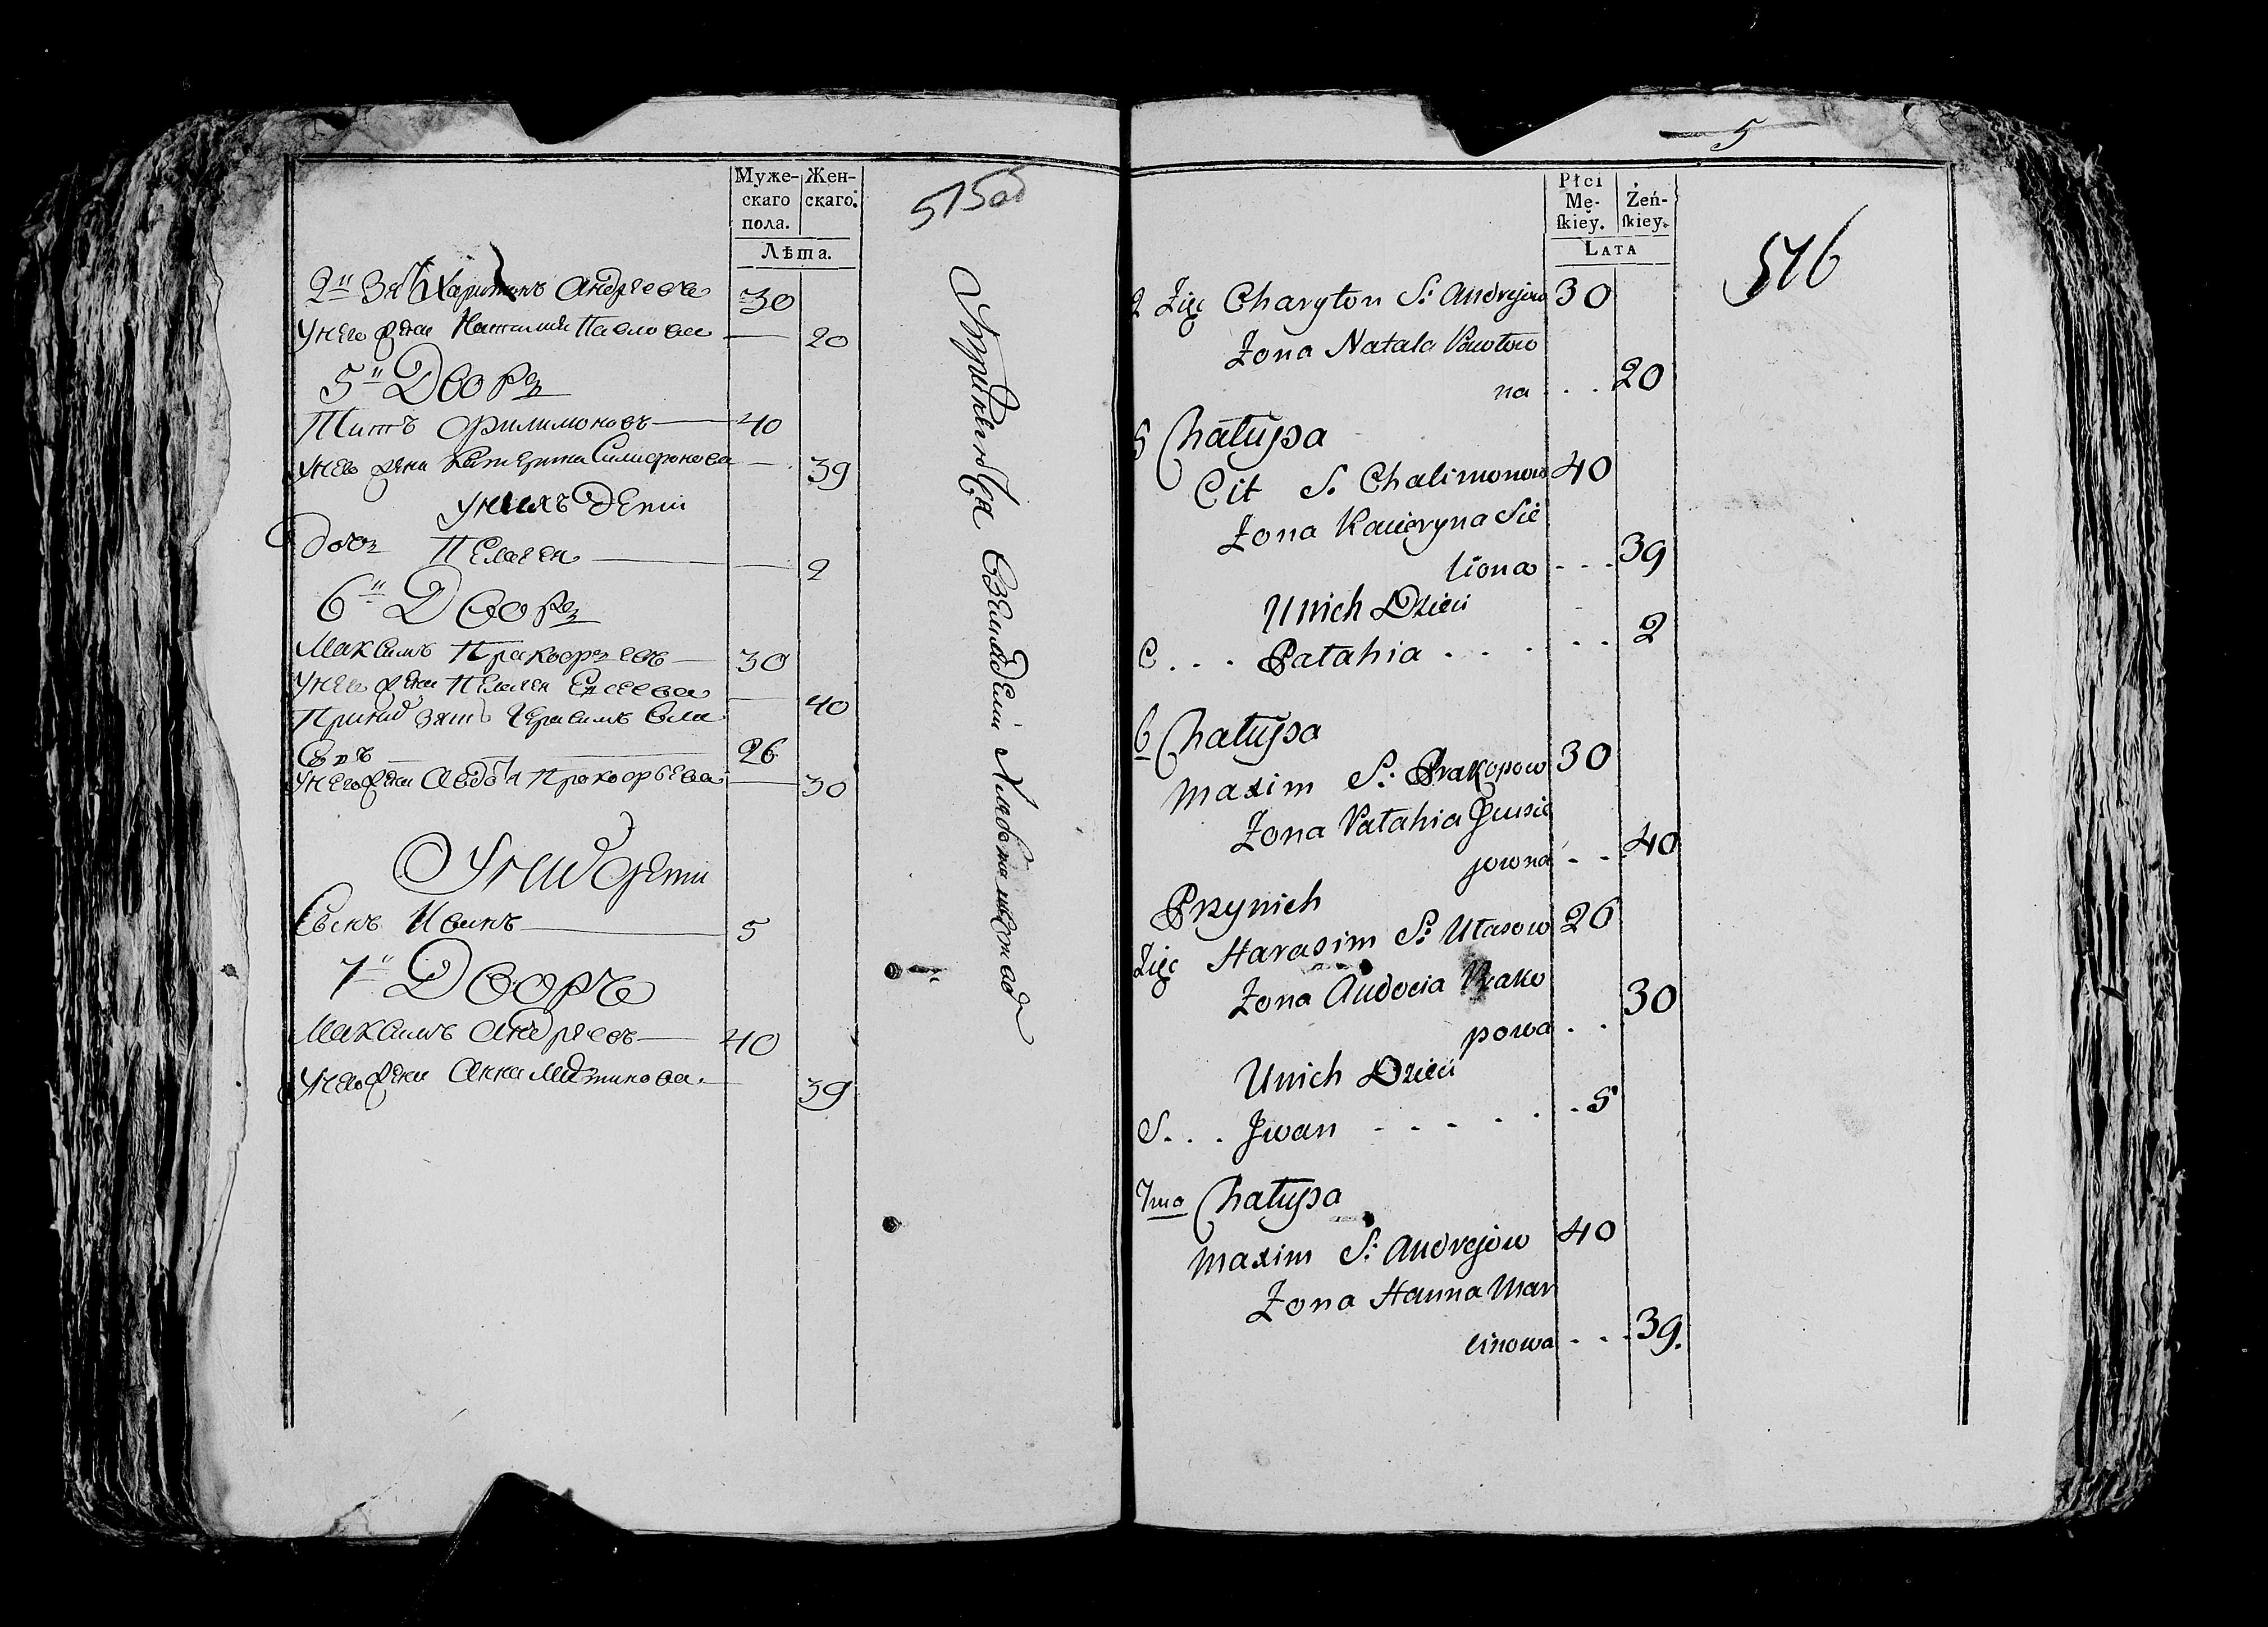 Муже-
скаго
пола.
Жен-
скаго.
Лѣта.
515об
2й Зять Харитонъ Андреевъ 30
У него жена Наталия Павлова 20
5й Дворъ
Титъ Филимоновъ 40
У него жена Катерина 39
У нихъ дети
Дочь Пелагея 2
6й Дворъ
Максимъ Пракофревъ 30
У него жена Пелагея Евсеева 40
При них зять Герасимъ Вла
совъ 26
У него жена Авдотя Прокофьева 30
У них дети
Сынъ Иванъ 5
7й Дворъ
Максимъ Андреевъ 40
У него жена Анна Мартинова 39
5
Płci
Mę-
ſkiey.
Żeń-
ſkiey.
LATA
516
2 Zięc Charyton S: Andrejow 30
Zona Natala Pawłow
na . . . 20
5 Chałupa
Cit S. Chalimonow 40
Zona Kacieryna Sie
liona . . . 39
Unich Dzieci
C . . . Pałahia . . . . . . 2
6 Chałupa
Maxim S: Prakopow 30
Zona Pałahia Jewsie
jowna . . . 40
Przynich
Zięc Harasim S: Ułasow 26
Zona Audocia Prako
powa . . 30
Unich Dzieci
S. . . Jwan . . . . . . 5
7ma Chałupa
Maxim S: Andrejow 40
Zona Hanna Mar
cinowa . . . 39.